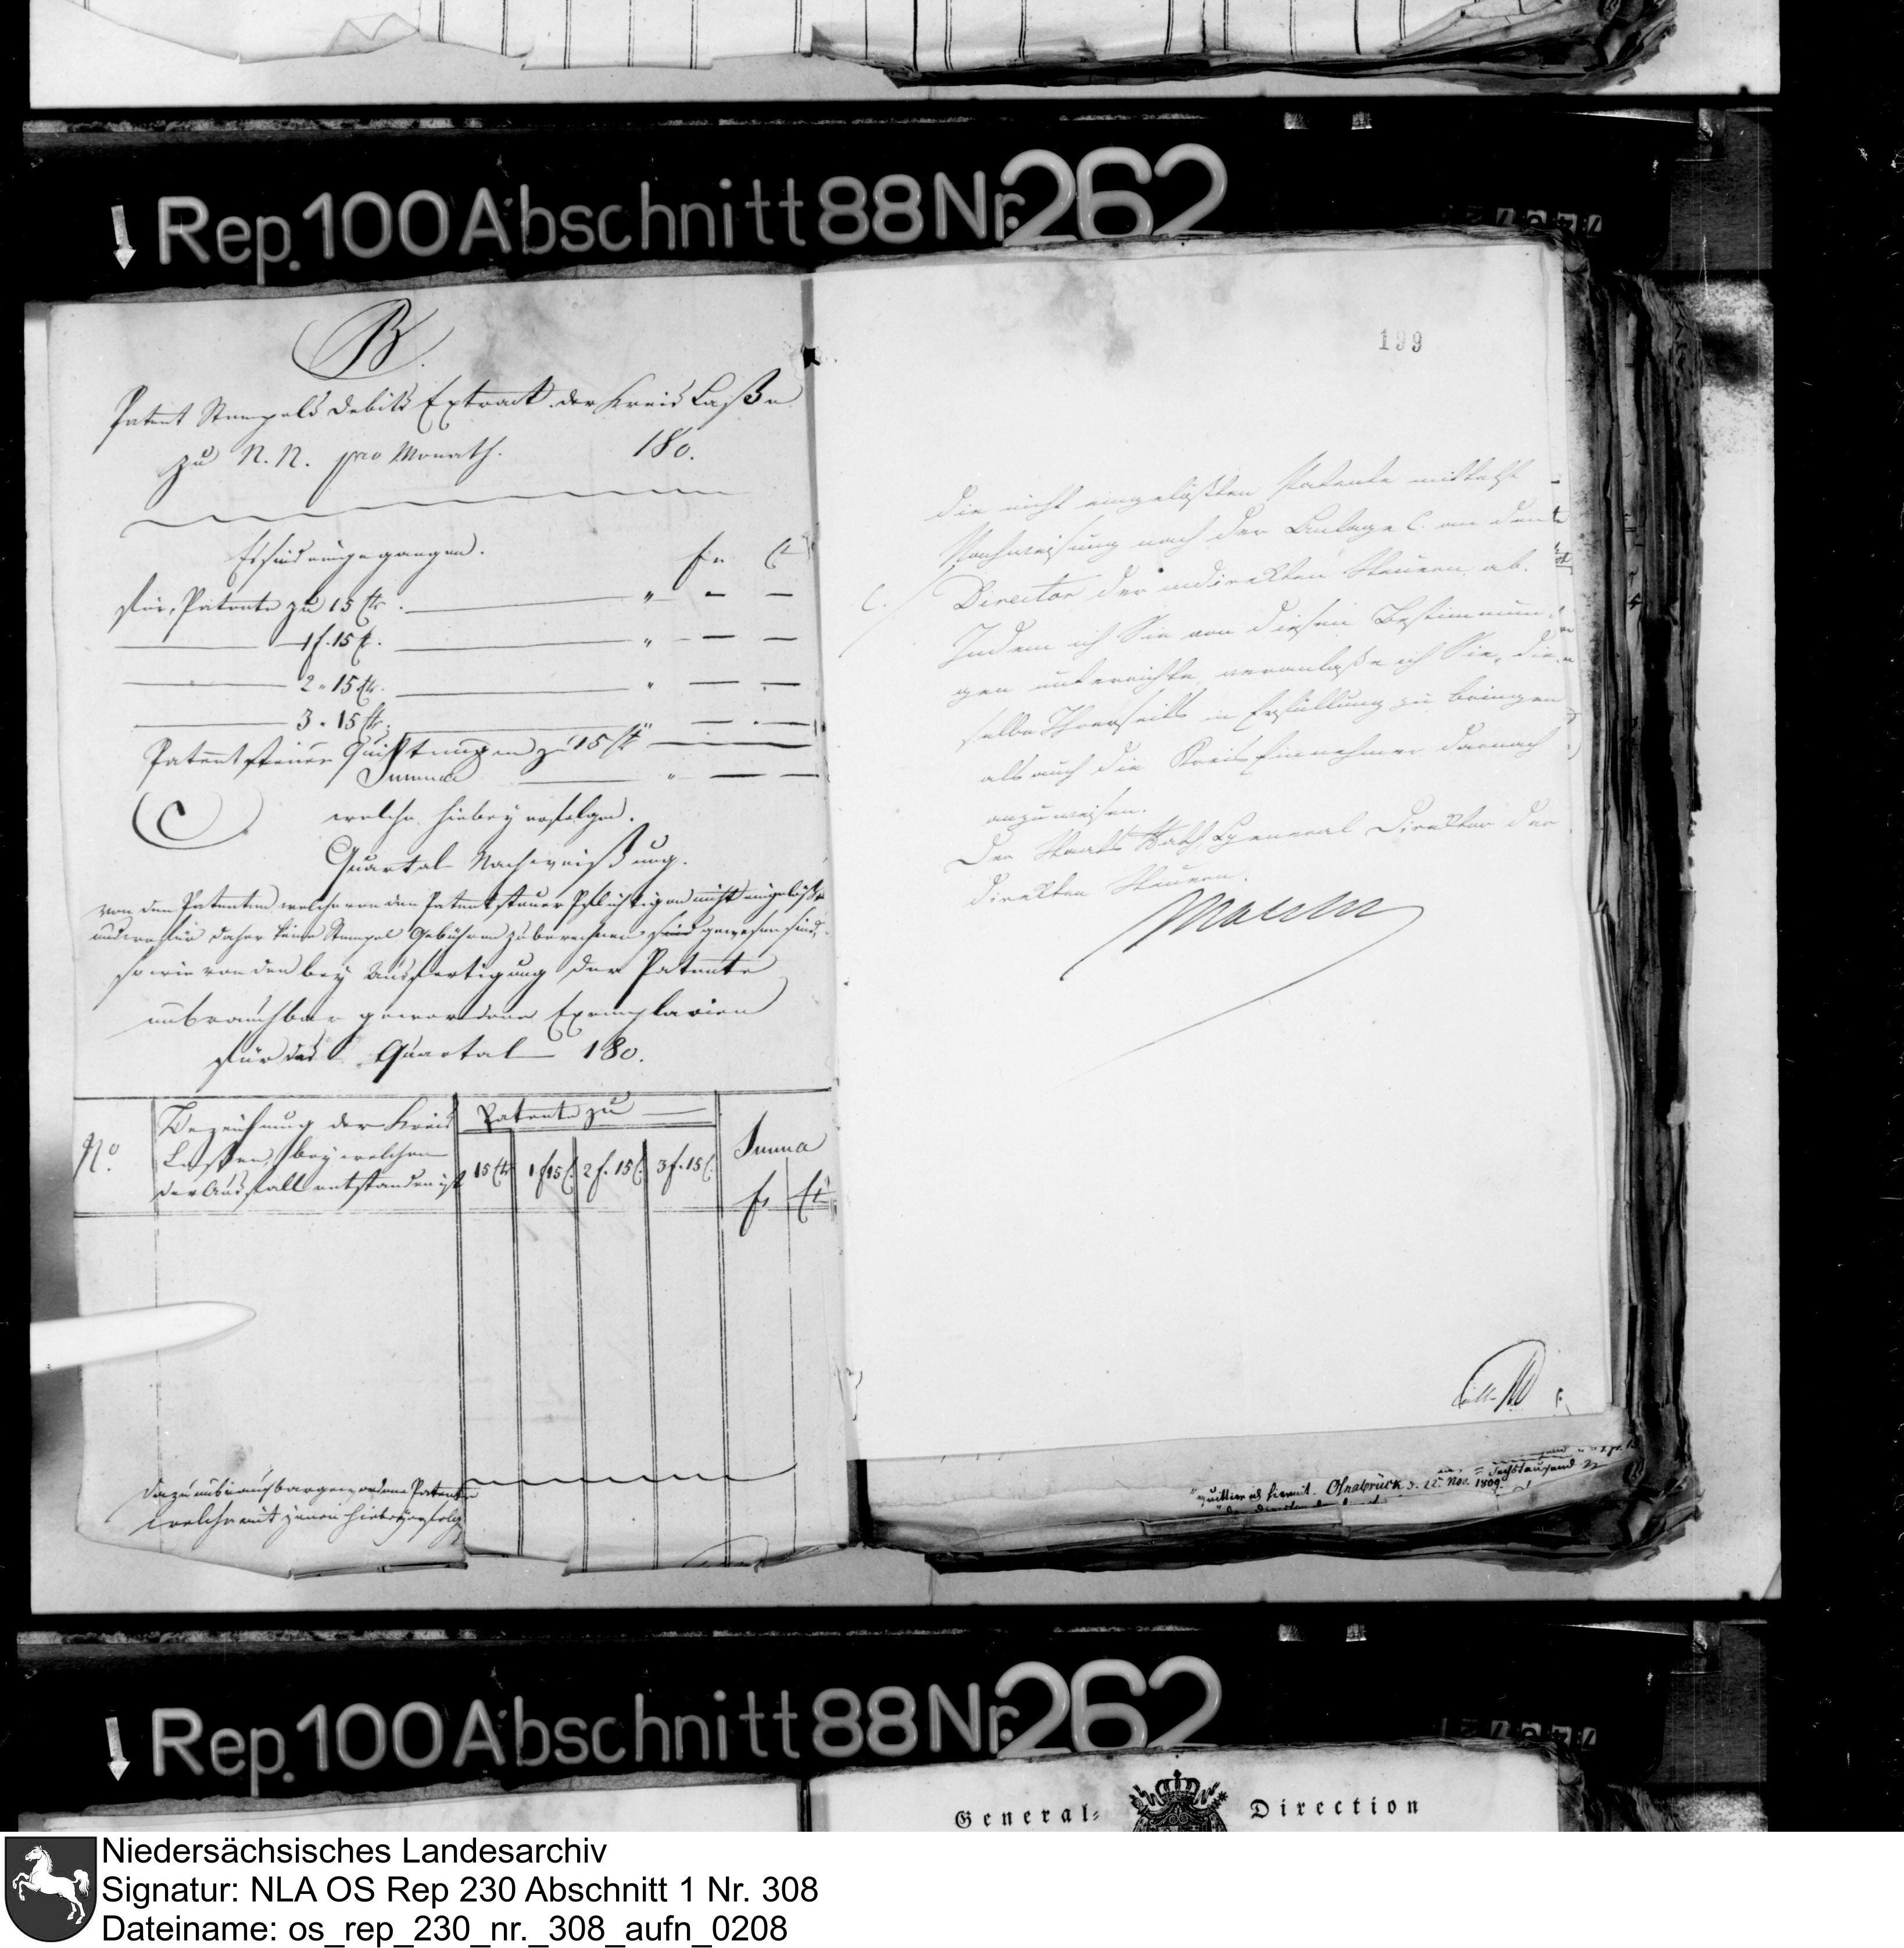 Rep. 100 Abschnitt 88 Nr. 262
B.
Patent Stempels Debits Extract der Kreis Casse
zu N. N. pro Monath. 180.
Es sind eingegangen. fr. Ct
Für Patente zu 15 Ct.
1 f. 15 C.
2 " 15 Ct.
3 " 15 Ct.
Patentsteuer Quittungen zu 15 Ct
Summa
C.
welche hiebey erfolgen.
Quartal Nachweißung.
von den Patenten welche von den Patentsteuer Pflichtigen nicht eingelößt
und wofür daher keine Stempel Gebühren zu berechnen gewesen sind,
so wie von den bey Ausfertigung der Patente
unbrauchbar gewordene Exemplarien
für das Quartal 180.
No. Bezeichnung der Kreis Patente zu Summa
Cassen, bey welchen
der Ausfall entstanden ist 15 Ct 1 f 15 C. 2 f. 15 C. 3 f. 15 C. fr Ct
dazu unbrauchbar gewordene Patente
welche mit hiebey erfolgen
199
die nicht eingelößten Patente mittelst
Nachweisung nach der Anlage C. an den
C. Director der indirekten Steuern ab.
Indem ich Sie von diesen Bestimmun-
gen unterrichte, veranlaße ich Sie, die-
selbe Ihrerseits in Erfüllung zu bringen
als auch die Kreis Einnehmer darnach
anzuweisen.
Der Staats Rath General Direktor der
direkten Steuern.
Malchus
quittire hiemit. Osnabrück d. 22 Nov. 1809.
Rep. 100 Abschnitt 88 Nr. 262
General- Direction
Niedersächsisches Landesarchiv
Signatur: NLA OS Rep 230 Abschnitt 1 Nr. 308
Dateiname: os_rep_230_nr._308_aufn_0208